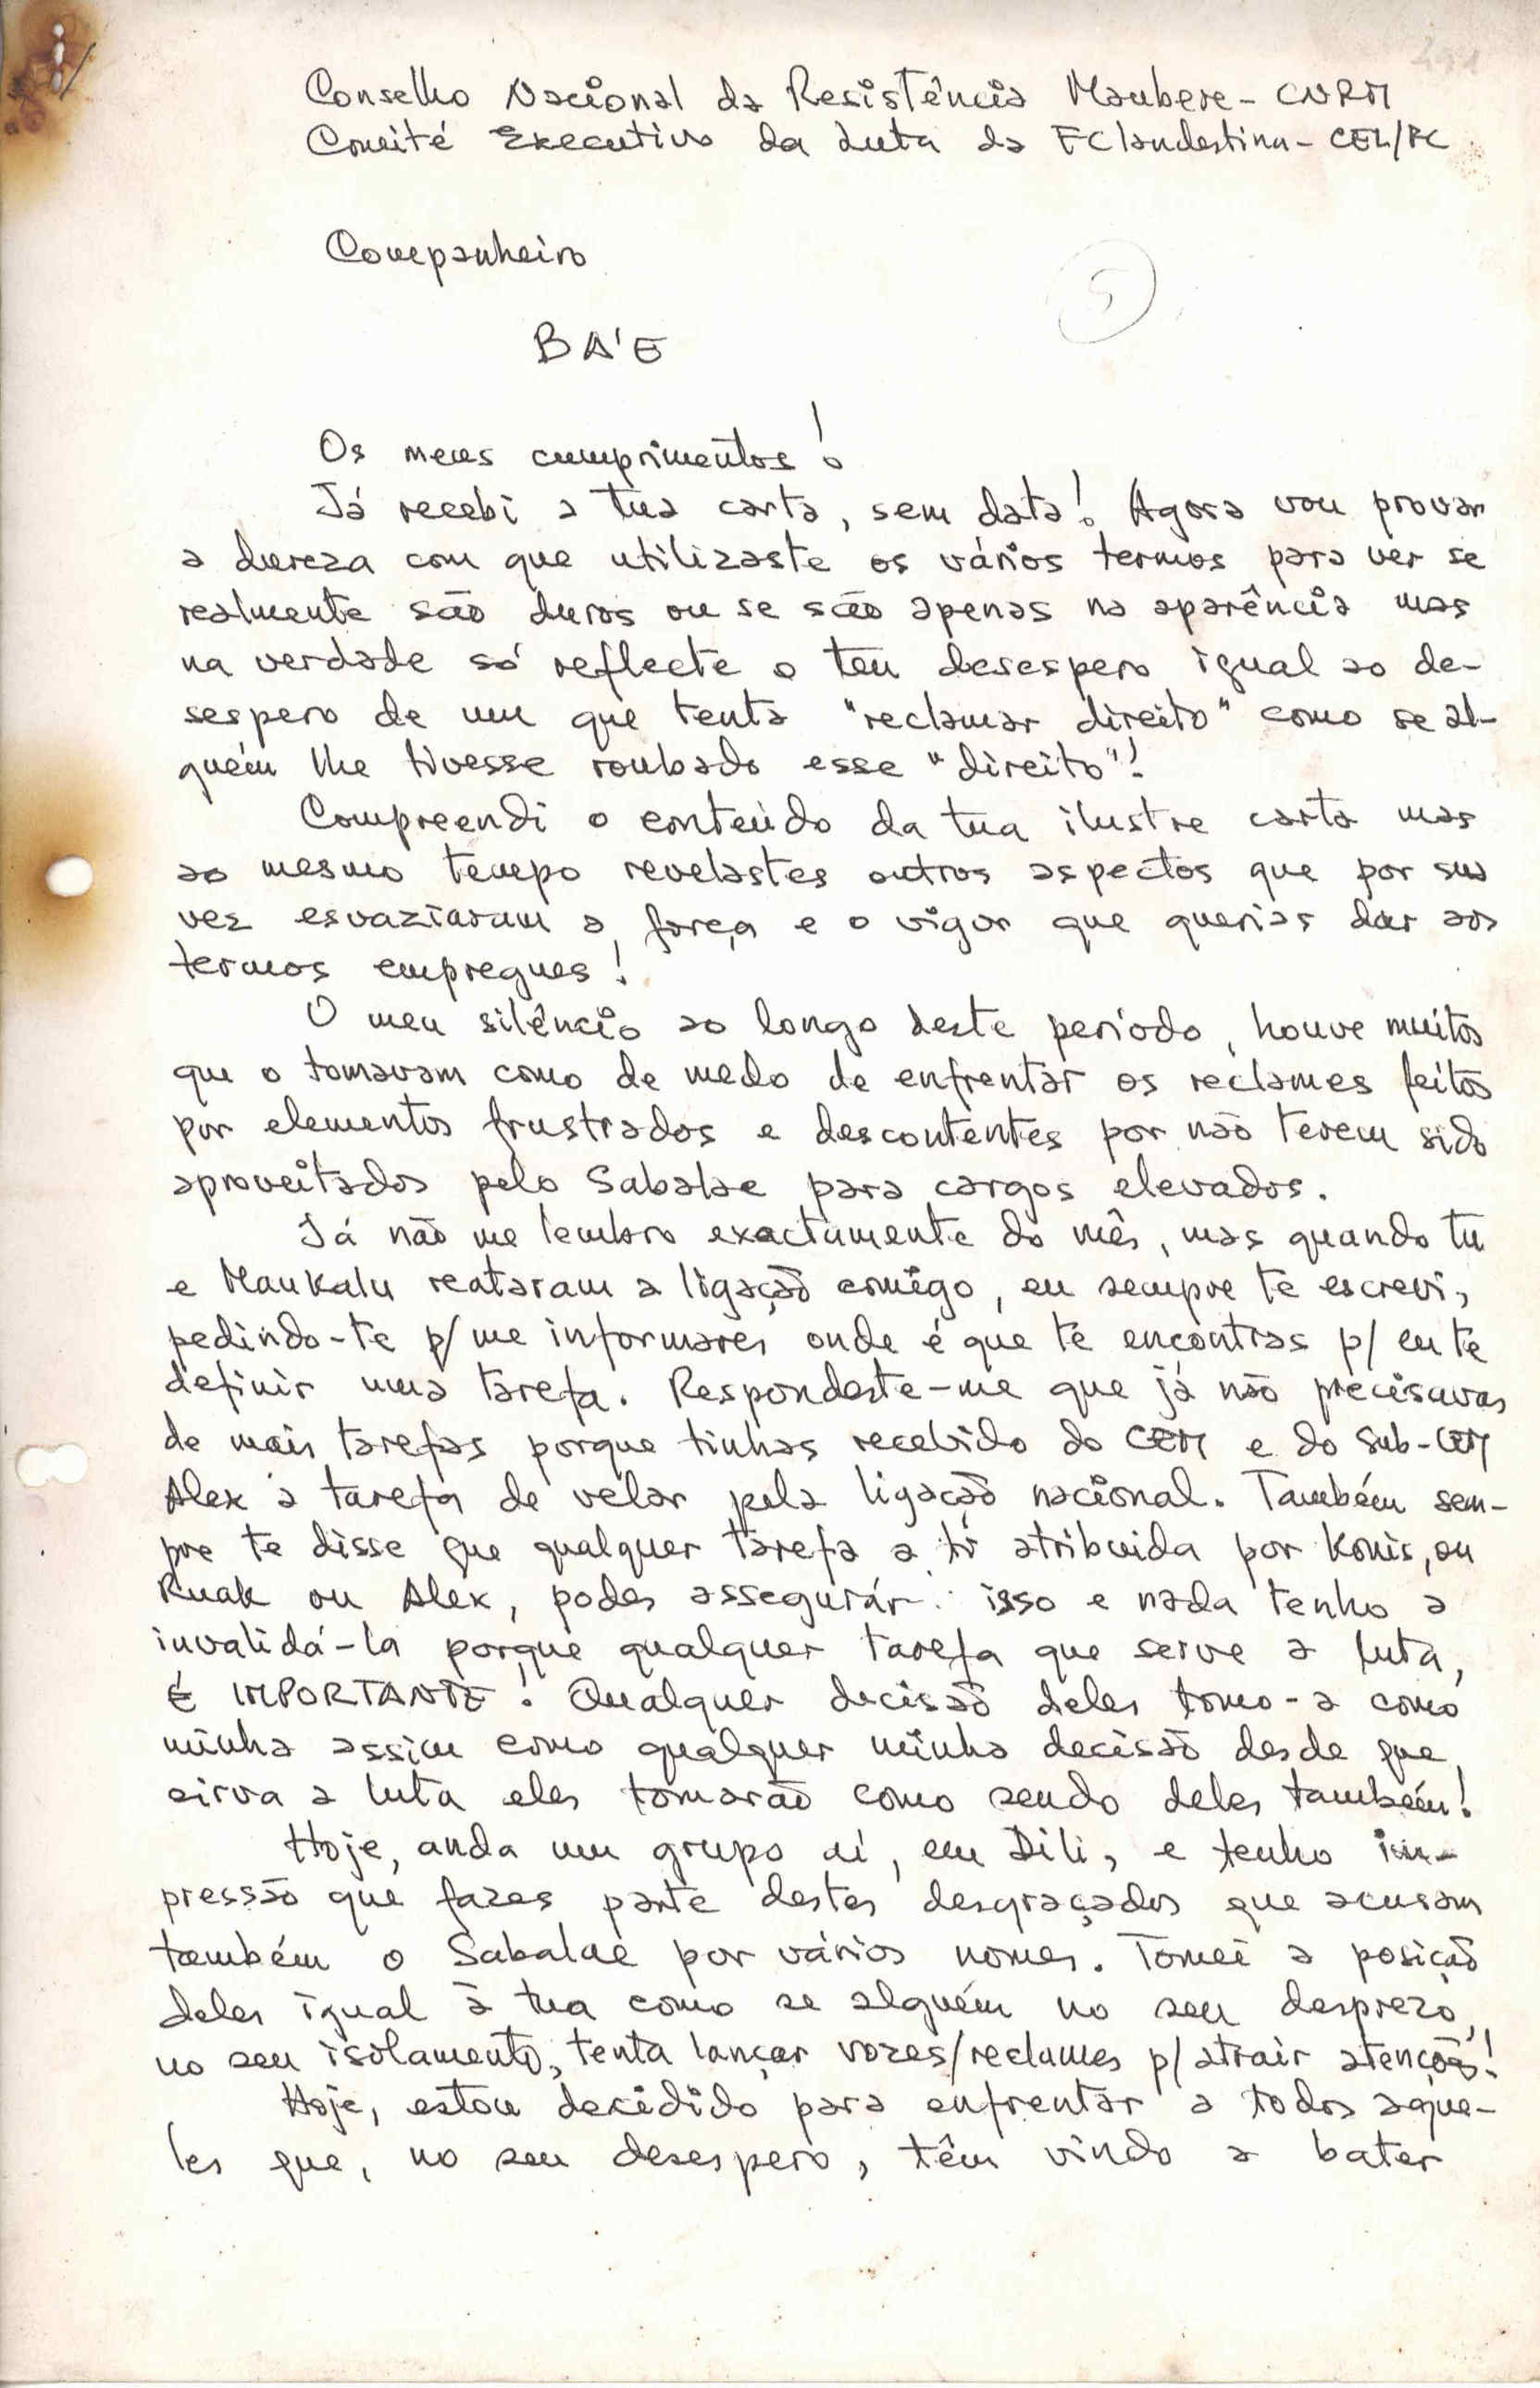 Conselho Nacional da Resistência Maubere - CNRM
Comité Executivo da Luta da FClandestina - CEL/FC
Companheiro
5
BA'E
Os meus cumprimentos!
Já recebi a tua carta, sem data! Agora vou provar
a dureza com que utilizaste os vários termos para ver se
realmente são duros ou se são apenas na aparência mas
na verdade só reflecte o teu desespero igual ao de-
sespero de um que tenta "reclamar direito" como se al-
guém lhe tivesse roubado esse "direito"!
Compreendi o conteúdo da tua ilustre carta mas
ao mesmo tempo revelastes outros aspectos que por sua
vez esvaziaram a força e o vigor que querias dar aos
termos empregues!
O meu silêncio ao longo deste período, houve muitos
que o tomavam como de medo de enfrentar os reclames feitos
por elementos frustrados e descontentes por não terem sido
aproveitados pelo Sabalae para cargos elevados.
Já não me lembro exactamente do mês, mas quando tu
e Maukalu reataram a ligação comigo, eu sempre te escrevi,
pedindo-te p/ me informares onde é que te encontras p/ eu te
definir uma tarefa. Respondeste-me que já não precisavas
de mais tarefas porque tinhas recebido do CEM e do Sub-CEM
Alex a tarefa de velar pela ligação nacional. Também sem-
pre te disse que qualquer tarefa a ti atribuida por Konis, ou
Ruak ou Alex, podes assegurár isso e nada tenho a
invalidá-la porque qualquer tarefa que serve a luta,
É IMPORTANTE! Qualquer decisão deles tomo-a como
minha assim como qualquer minha decisão desde que
sirva a luta eles tomarão como sendo deles também!
Hoje, anda um grupo aí, em Dili, e tenho im-
pressão que fazes parte destes desgraçados que acusam
também o Sabalae por vários nomes. Tomei a posição
deles igual à tua como se alguém no seu desprezo,
no seu isolamento, tenta lançar vozes/reclames p/ atrair atenções!
Hoje, estou decidido para enfrentar a todos aque-
les que, no seu desespero, têm vindo a bater